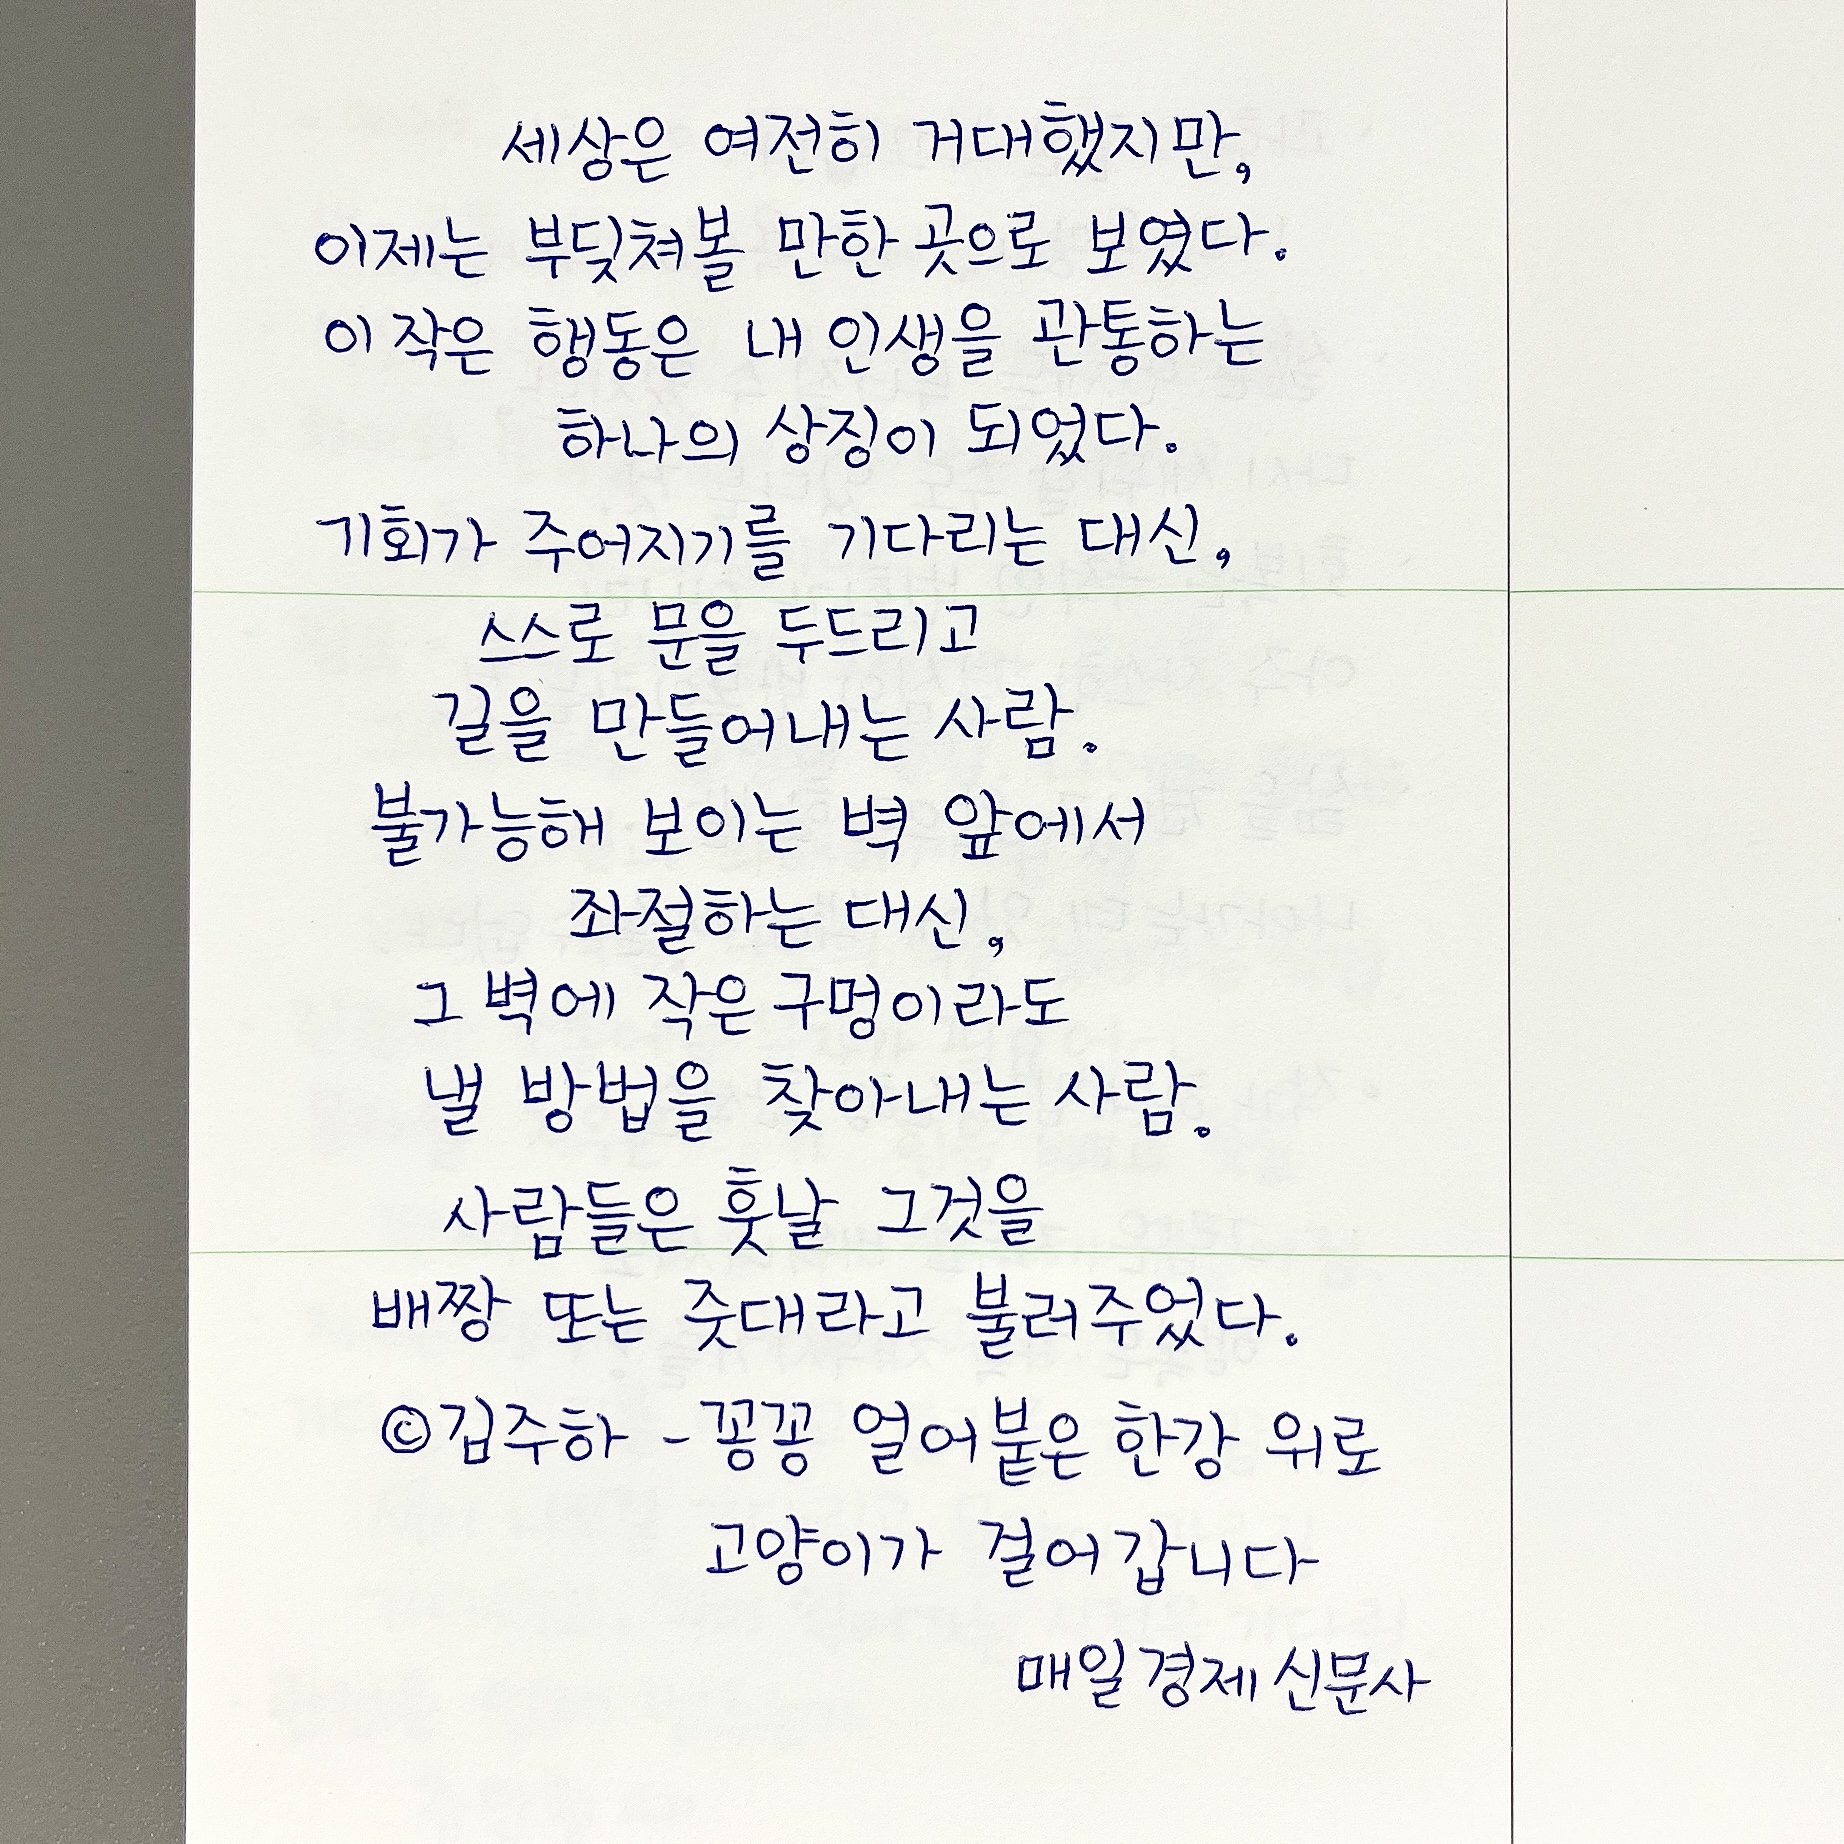 세상은 여전히 거대했지만,
이제는 부딪쳐볼 만한 곳으로 보였다.
이 작은 행동은 내 인생을 관통하는
하나의 상징이 되었다.
기회가 주어지기를 기다리는 대신,
스스로 문을 두드리고
길을 만들어내는 사람.
불가능해 보이는 벽 앞에서
좌절하는 대신,
그 벽에 작은 구멍이라도
낼 방법을 찾아내는 사람.
사람들은 훗날 그것을
배짱 또는 줏대라고 불러주었다.
©김주하 - 꽁꽁 얼어붙은 한강 위로
고양이가 걸어갑니다
매일경제신문사